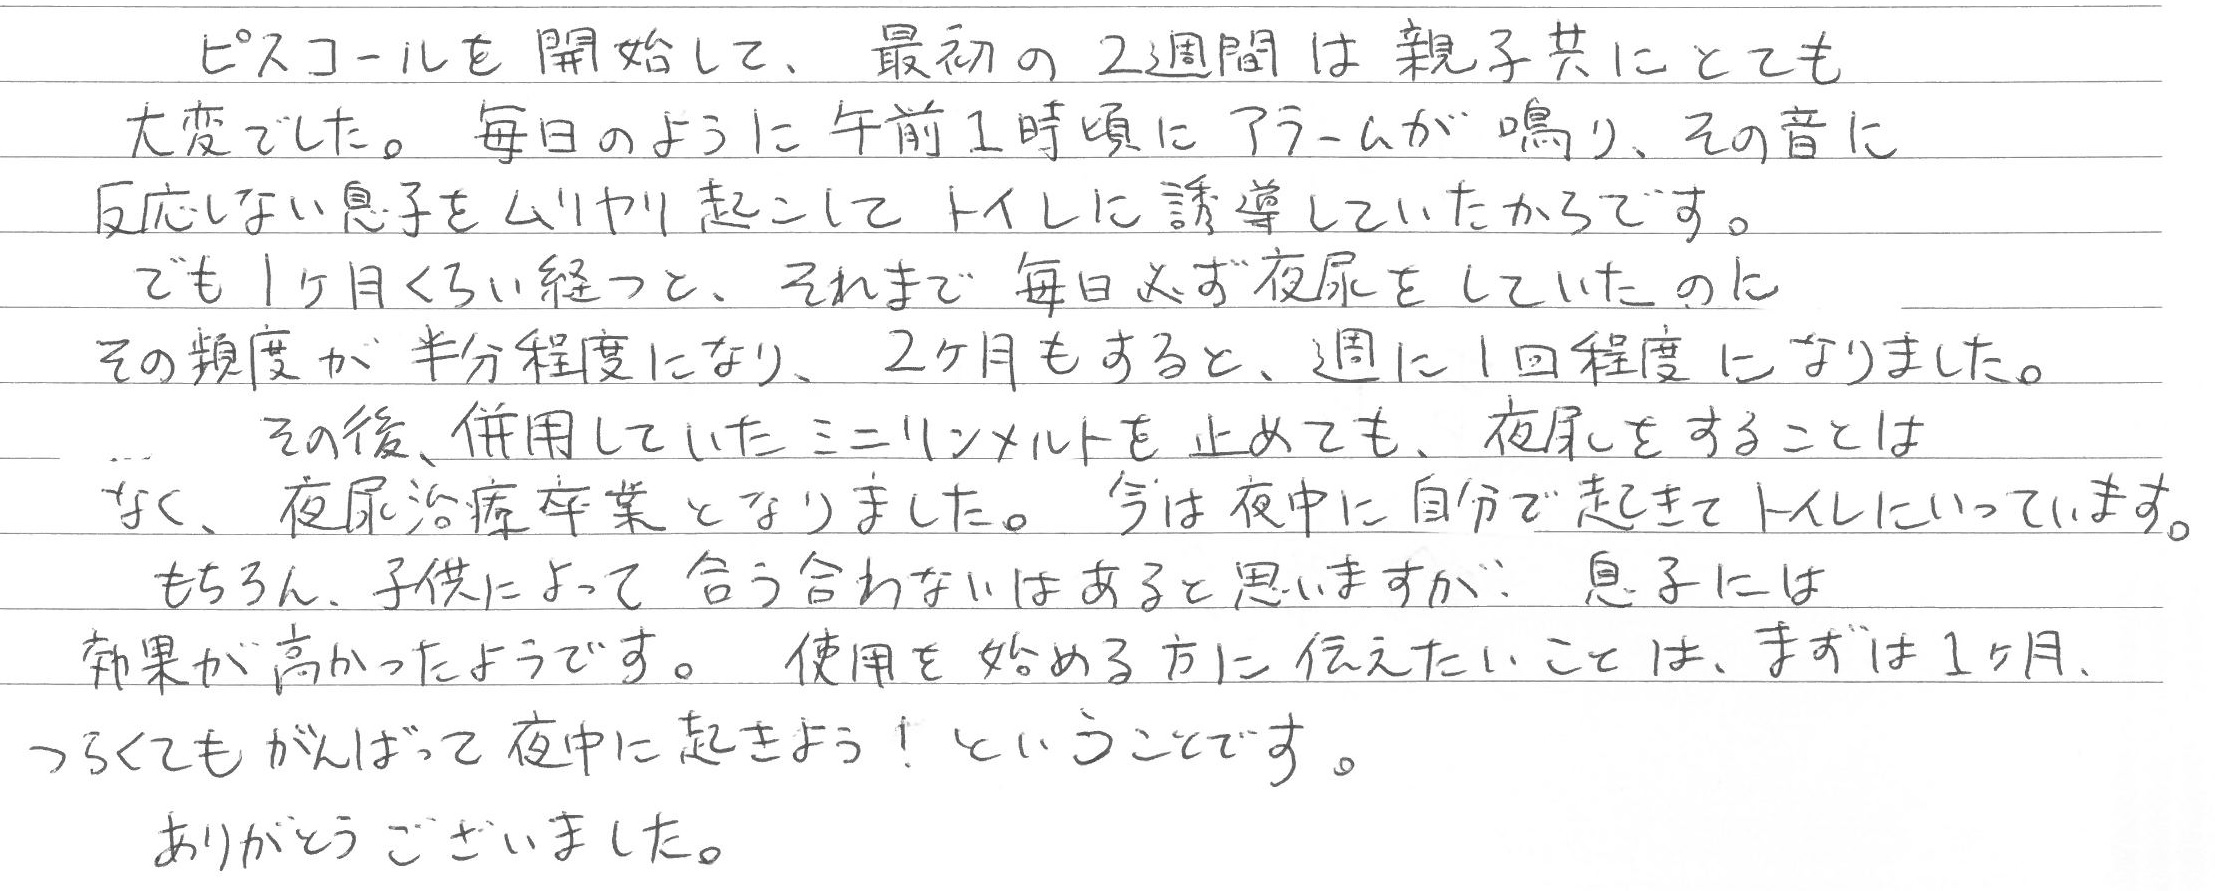 ピスコールを開始して、最初の2週間は親子共にとても
大変でした。毎日のように午前1時頃にアラームが鳴り、その音に
反応しない息子をムリヤリ起こしてトイレに誘導していたからです。
でも1ヶ月くらい経つと、それまで毎日必ず夜尿をしていたのに
その頻度が半分程度になり、2ヶ月もすると、週に1回程度になりました。
その後、併用していたミニリンメルトを止めても、夜尿をすることは
なく、夜尿治療卒業となりました。今は夜中に自分で起きてトイレにいっています。
もちろん、子供によって合う合わないはあると思いますが、息子には
効果が高かったようです。使用を始める方に伝えたいことは、まずは1ヶ月、
つらくてもがんばって夜中に起きよう！ということです。
ありがとうございました。